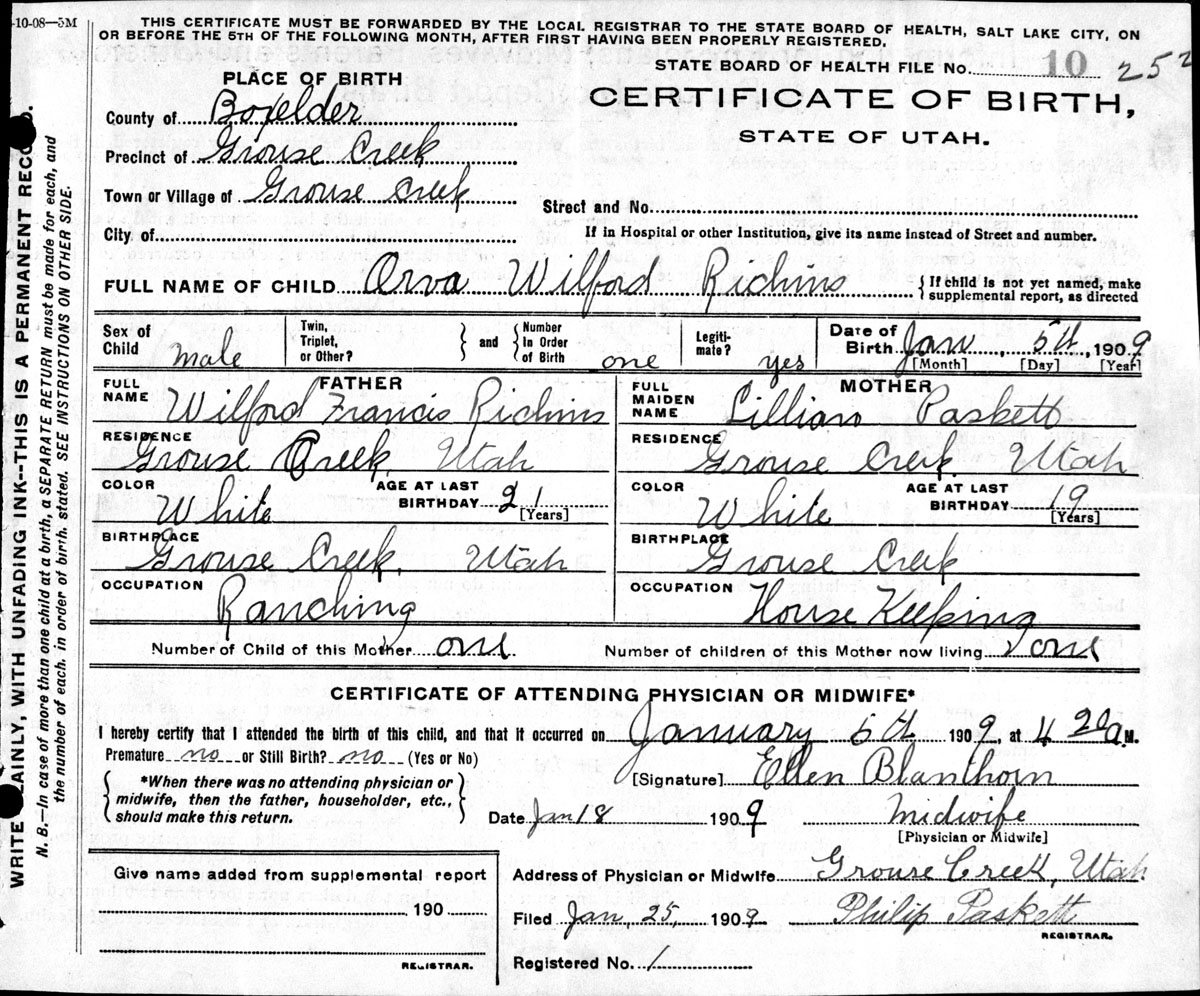 -10-08—3M
THIS CERTIFICATE MUST BE FORWARDED BY THE LOCAL REGISTRAR TO THE STATE BOARD OF HEALTH, SALT LAKE CITY, ON
OR BEFORE THE 5TH OF THE FOLLOWING MONTH, AFTER FIRST HAVING BEEN PROPERLY REGISTERED.
STATE BOARD OF HEALTH FILE No. 10 252
PLACE OF BIRTH
CERTIFICATE OF BIRTH,
STATE OF UTAH.
County of Boxelder
Precinct of Grouse Creek
Town or Village of Grouse Creek
Street and No.
City of
If in Hospital or other Institution, give its name instead of Street and number.
FULL NAME OF CHILD Orva Wilford Richins {If child is not yet named, make
supplemental report, as directed
Sex of Child male
Twin, Triplet, or Other? } and { Number In Order of Birth one
Legiti-mate? yes
Date of Birth Jan, 5th, 1909
[Month] [Day] [Year]
FATHER
FULL NAME Wilford Francis Richins
RESIDENCE Grouse Creek, Utah
COLOR White AGE AT LAST BIRTHDAY 21 [Years]
BIRTHPLACE Grouse Creek, Utah
OCCUPATION Ranching
MOTHER
FULL MAIDEN NAME Lillian Paskett
RESIDENCE Grouse Creek, Utah
COLOR White AGE AT LAST BIRTHDAY 19 [Years]
BIRTHPLACE Grouse Creek
OCCUPATION House Keeping
Number of Child of this Mother one Number of children of this Mother now living one
CERTIFICATE OF ATTENDING PHYSICIAN OR MIDWIFE*
I hereby certify that I attended the birth of this child, and that it occurred on January 5th 1909, at 4 20 a M.
Premature no or Still Birth? no (Yes or No)
[Signature] Ellen Blanthorn
{*When there was no attending physician or
midwife, then the father, householder, etc.,
should make this return.}
Date Jan 18 1909 Midwife
[Physician or Midwife]
Give name added from supplemental report
190
REGISTRAR.
Address of Physician or Midwife Grouse Creek, Utah
Filed Jan, 25, 1909 Philip Paskett
REGISTRAR.
Registered No. 1
WRITE PLAINLY, WITH UNFADING INK--THIS IS A PERMANENT RECORD.
N. B.—In case of more than one child at a birth, a SEPARATE RETURN must be made for each, and
the number of each, in order of birth, stated. SEE INSTRUCTIONS ON OTHER SIDE.